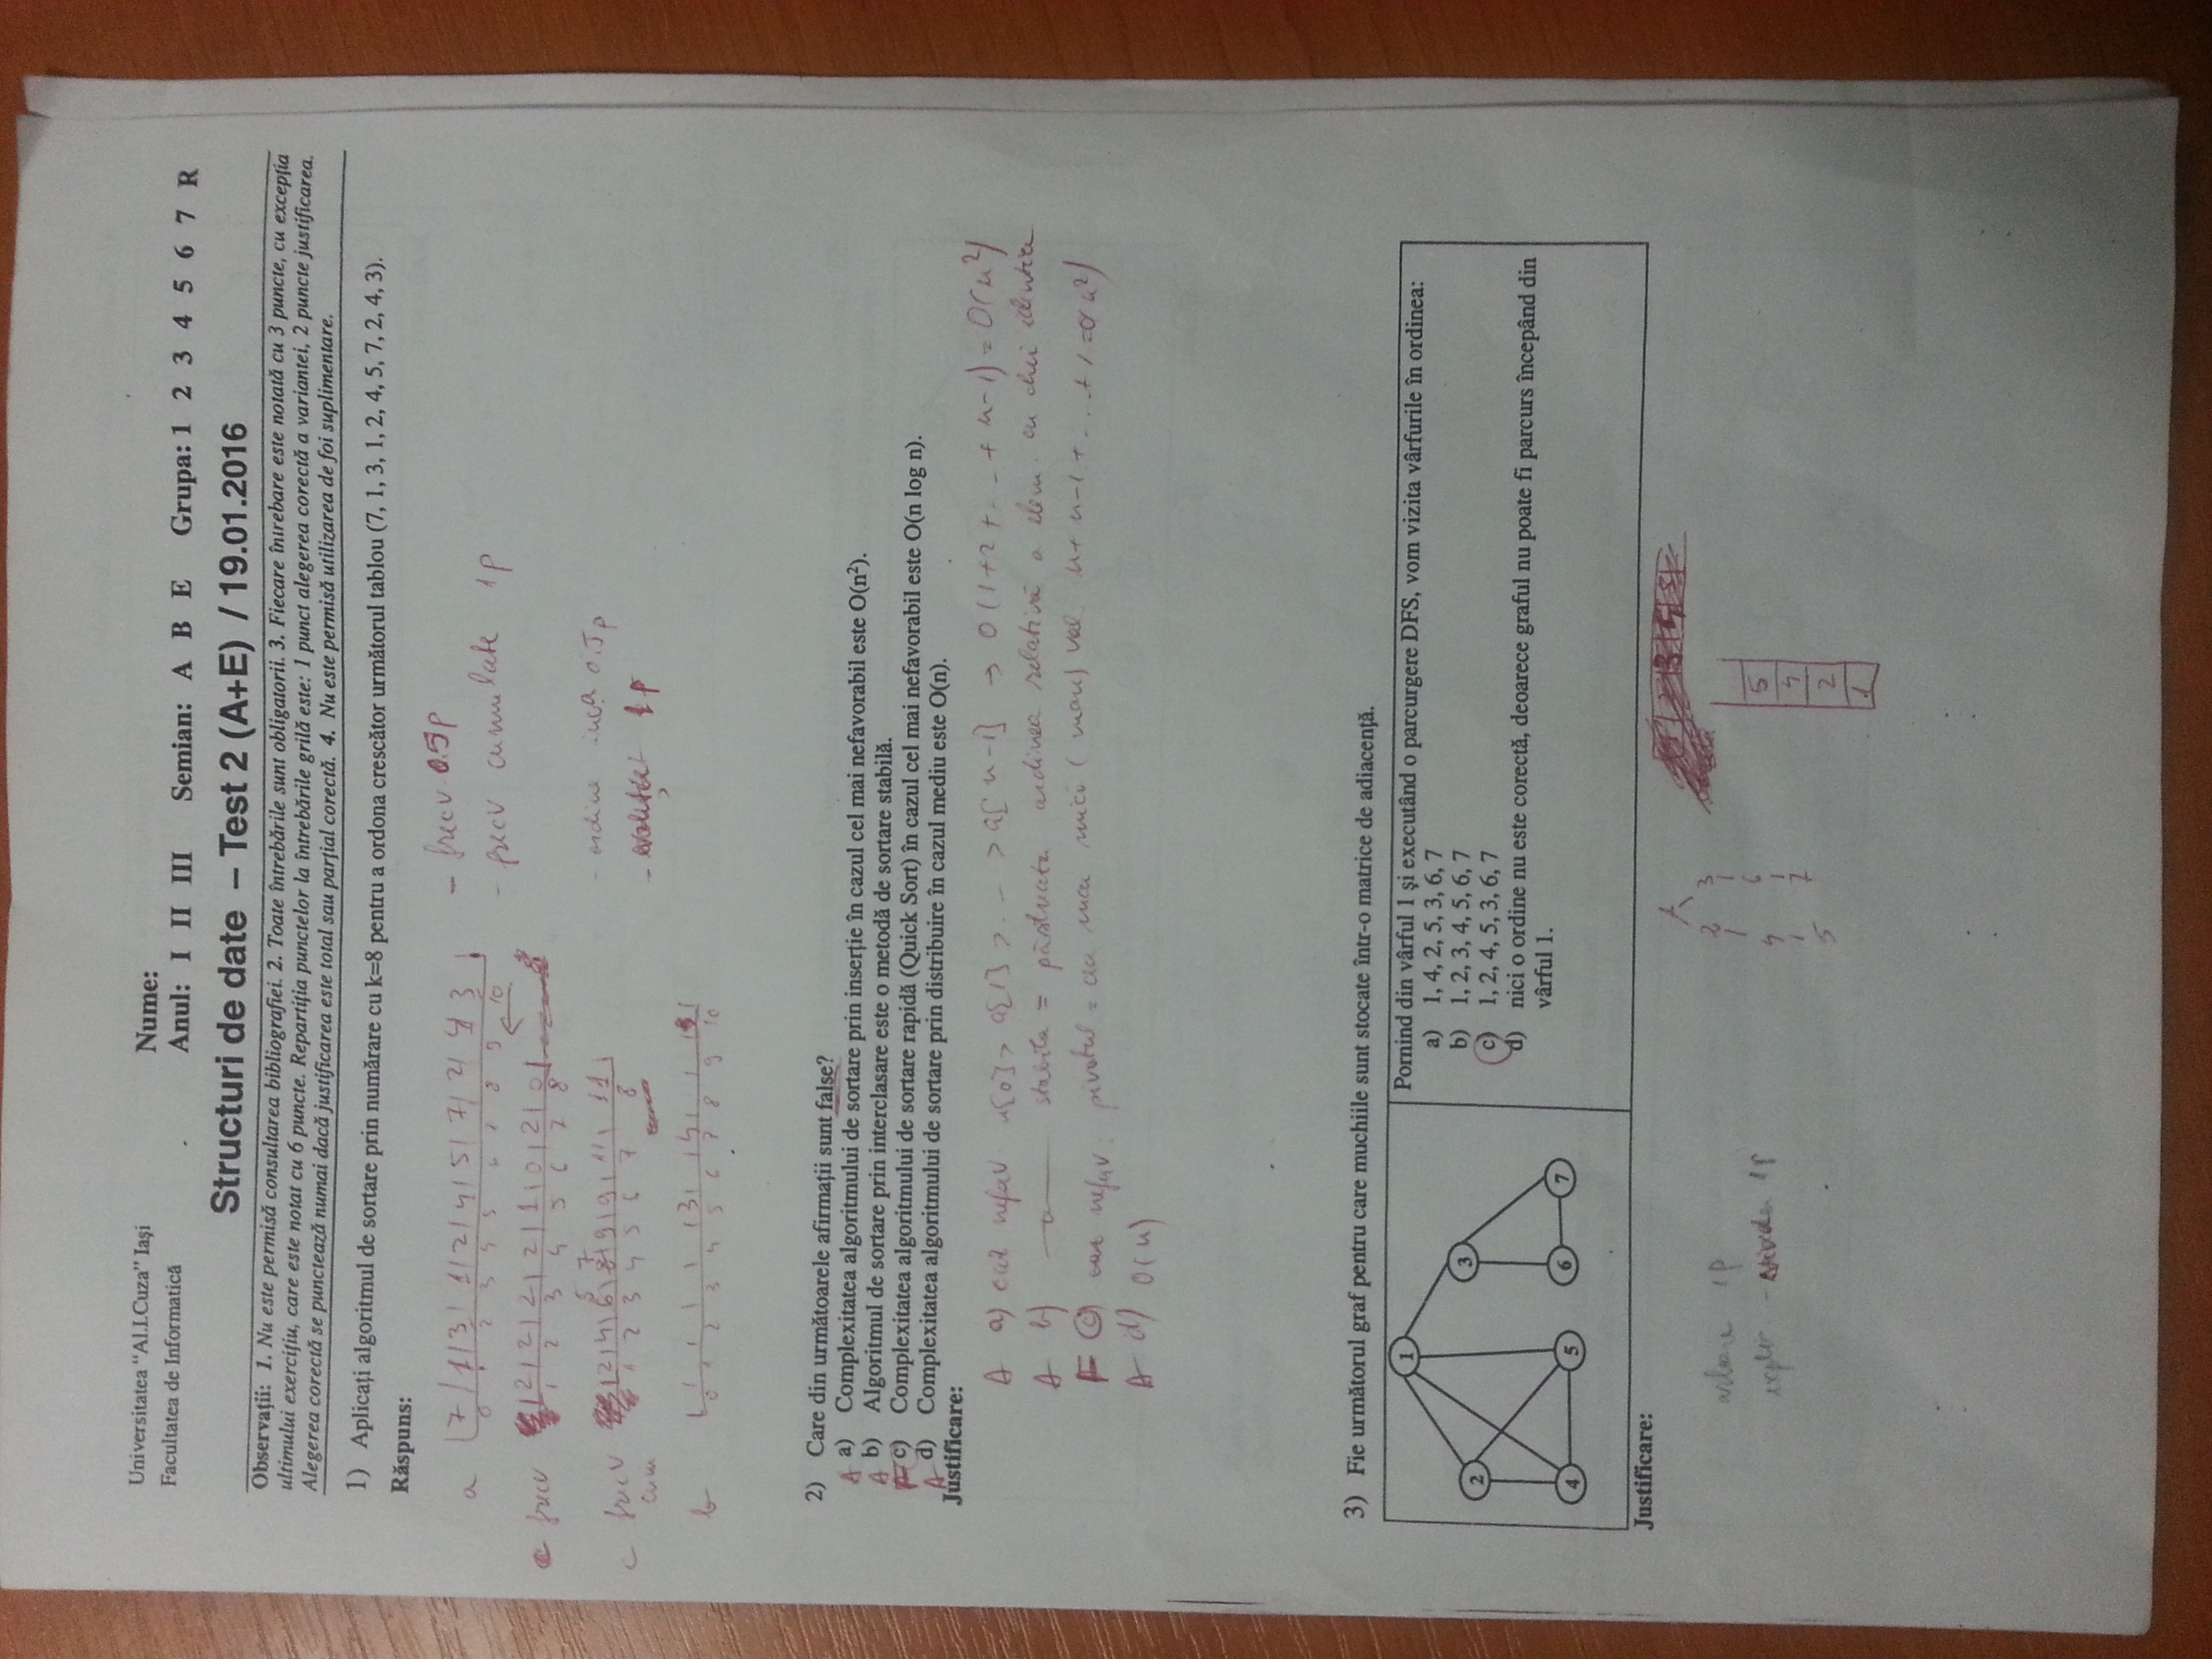 Universitatea “Al.I.Cuza” Iaşi
Facultatea de Informatică
Nume:
Anul: I II III Semian: A B E Grupa: 1 2 3 4 5 6 7 R
Structuri de date – Test 2 (A+E) / 19.01.2016
Observaţii: 1. Nu este permisă consultarea bibliografiei. 2. Toate întrebările sunt obligatorii. 3. Fiecare întrebare este notată cu 3 puncte, cu excepţia
ultimului exerciţiu, care este notat cu 6 puncte. Repartiţia punctelor la întrebările grilă este: 1 punct alegerea corectă a variantei, 2 puncte justificarea.
Alegerea corectă se punctează numai dacă justificarea este total sau parţial corectă. 4. Nu este permisă utilizarea de foi suplimentare.
1) Aplicaţi algoritmul de sortare prin numărare cu k=8 pentru a ordona crescător următorul tablou (7, 1, 3, 1, 2, 4, 5, 7, 2, 4, 3).
Răspuns:
a 7 1 3 1 2 4 5 7 2 4 3
0 1 2 3 4 5 6 7 8 9 10
- frecv 0.5p
- frecv cumulate 1p
c frecv 2 2 2 2 1 0 2 0
1 2 3 4 5 6 7 8
5 7
c frecv 2 4 6 8 9 9 11 11
cum 1 2 3 4 5 6 7 8
- ordine 0.5p
- 1p
b 3 4
0 1 2 3 4 5 6 7 8 9 10
2) Care din următoarele afirmaţii sunt false?
A a) Complexitatea algoritmului de sortare prin inserţie în cazul cel mai nefavorabil este O(n²).
A b) Algoritmul de sortare prin interclasare este o metodă de sortare stabilă.
F c) Complexitatea algoritmului de sortare rapidă (Quick Sort) în cazul cel mai nefavorabil este O(n log n).
A d) Complexitatea algoritmului de sortare prin distribuire în cazul mediu este O(n).
Justificare:
A a) caz nefav a[0] > a[1] > ... > a[n-1] → O(1+2+...+n-1) = O(n²)
A b) stabila = ordinea relativă a elem. cu chei identice
F c) caz nefav: pivotul = cea mai mică (mare) val n+n-1+...+1=O(n²)
A d) O(n)
3) Fie următorul graf pentru care muchiile sunt stocate într-o matrice de adiacenţă.
1
2
3
4
5
6
7
Pornind din vârful 1 şi executând o parcurgere DFS, vom vizita vârfurile în ordinea:
a) 1, 4, 2, 5, 3, 6, 7
b) 1, 2, 3, 4, 5, 6, 7
c) 1, 2, 4, 5, 3, 6, 7
d) nici o ordine nu este corectă, deoarece graful nu poate fi parcurs începând din
vârful 1.
Justificare:
arbore 1p
explic. 1p
1
2 3
4 6
5 7
5
4
2
1